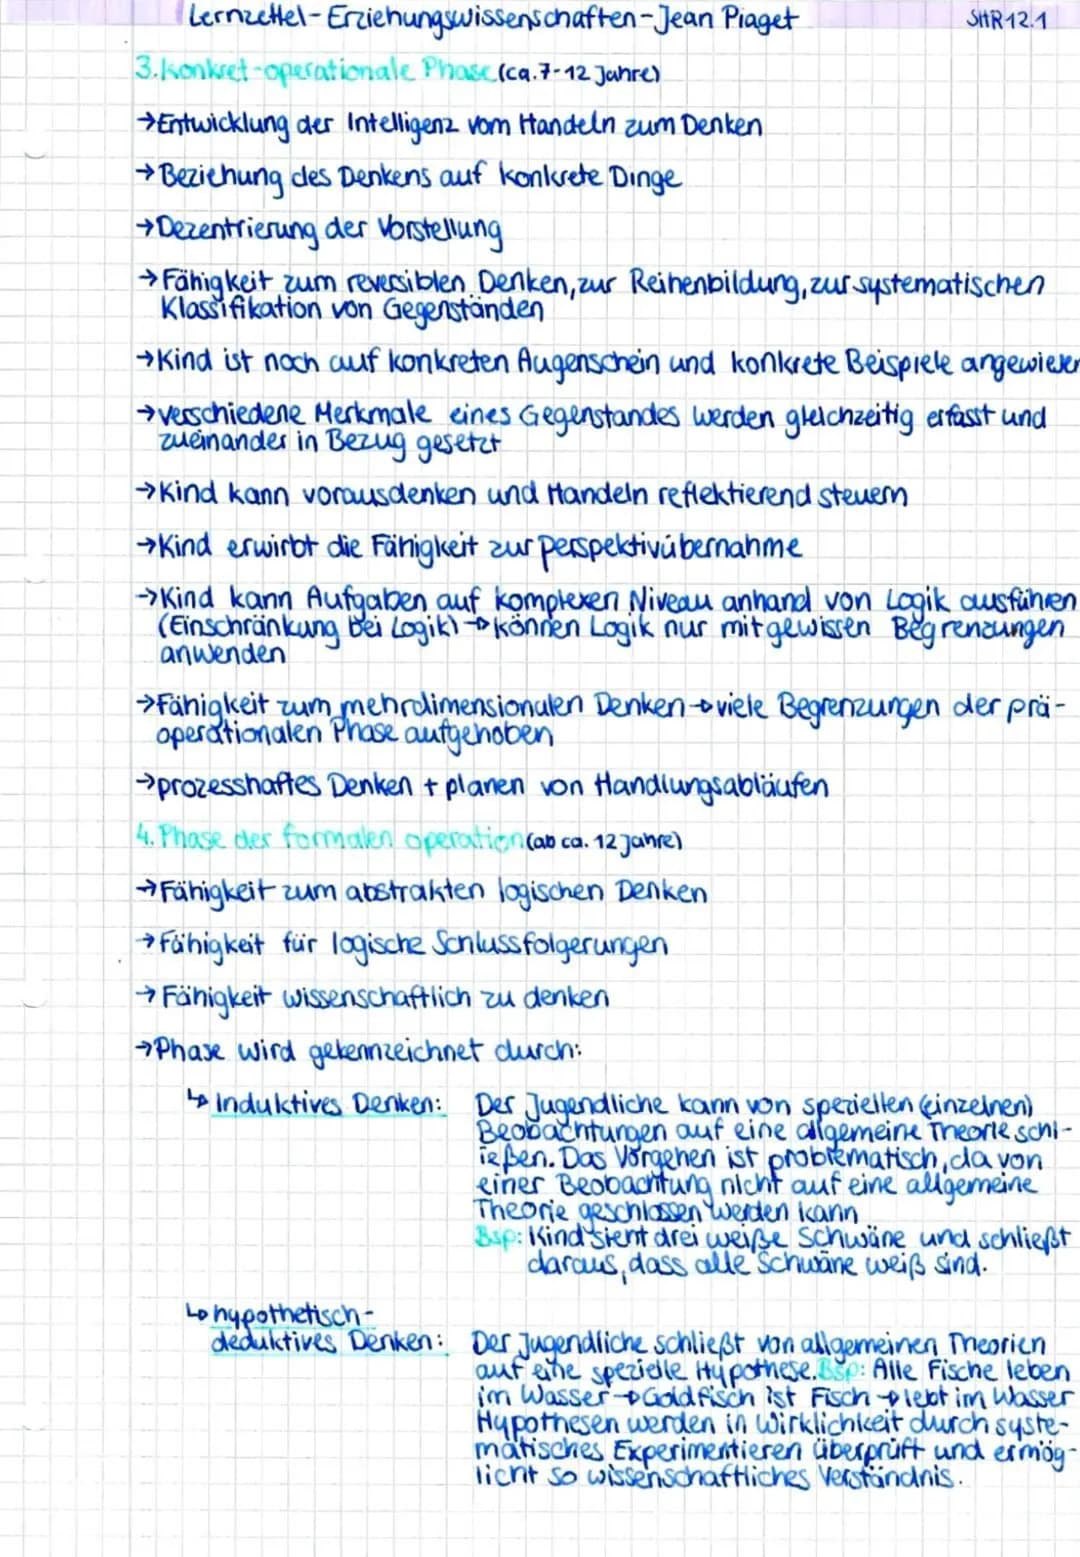 Lernzettel-Erziehungswissenschaften-Jean Piaget SHR12.1
3. Konkret-operationale Phase (ca. 7-12 Jahre)
→Entwicklung der Intelligenz vom Handeln zum Denken
→Beziehung des Denkens auf konkrete Dinge
→Dezentrierung der Vorstellung
→Fähigkeit zum reversiblen Denken, zur Reihenbildung, zur systematischen
Klassifikation von Gegenständen
→Kind ist noch auf konkreten Augenschein und konkrete Beispiele angewiesen
→verschiedene Merkmale eines Gegenstandes werden gleichzeitig erfasst und
zueinander in Bezug gesetzt
→Kind kann vorausdenken und Handeln reflektierend steuern
→Kind erwirbt die Fähigkeit zur perspektivübernahme
→Kind kann Aufgaben auf komplexen Niveau anhand von Logik ausführen
(Einschränkung bei Logik) → können Logik nur mit gewissen Begrenzungen
anwenden
→Fähigkeit zum mehrdimensionalen Denken → viele Begrenzungen der prä-
operationalen Phase aufgehoben
→prozesshaftes Denken + planen von Handlungsabläufen
4. Phase der formalen operation (ab ca. 12 Jahre)
→Fähigkeit zum abstrakten logischen Denken
→Fähigkeit für logische Schlussfolgerungen
→Fähigkeit wissenschaftlich zu denken
→Phase wird gekennzeichnet durch:
↳ Induktives Denken: Der Jugendliche kann von speziellen (einzelnen)
Beobachtungen auf eine allgemeine Theorie schl-
ießen. Das Vorgehen ist problematisch, da von
einer Beobachtung nicht auf eine allgemeine
Theorie geschlossen werden kann
Bsp: Kind sieht drei weiße Schwäne und schließt
daraus, dass alle Schwäne weiß sind.
↳ hypothetisch-
deduktives Denken: Der Jugendliche schließt von allgemeinen Theorien
auf eine spezielle Hypothese. Bsp: Alle Fische leben
im Wasser → Goldfisch ist Fisch → lebt im Wasser
Hypothesen werden in Wirklichkeit durch syste-
matisches Experimentieren überprüft und ermög-
licht so wissenschaftliches Verständnis.